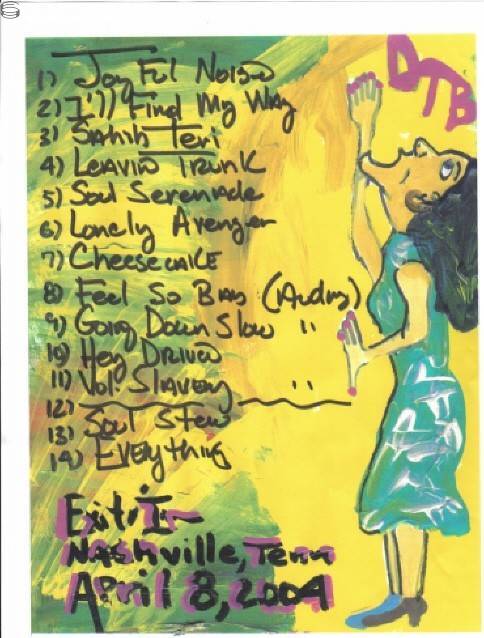 DTB
1) Joyful Noise
2) I'll Find My Way
3) Sahib Teri
4) Leavin Trunk
5) Soul Serenade
6) Lonely Avenger
7) Cheesecake
8) Feel So Bad (Audrey)
9) Going Down Slow "
10) Hey Driver
11) Vol. Slavery "
12)
13) Soul Stew
14) Everything
Exit/In
Nashville, Tenn
April 8, 2004